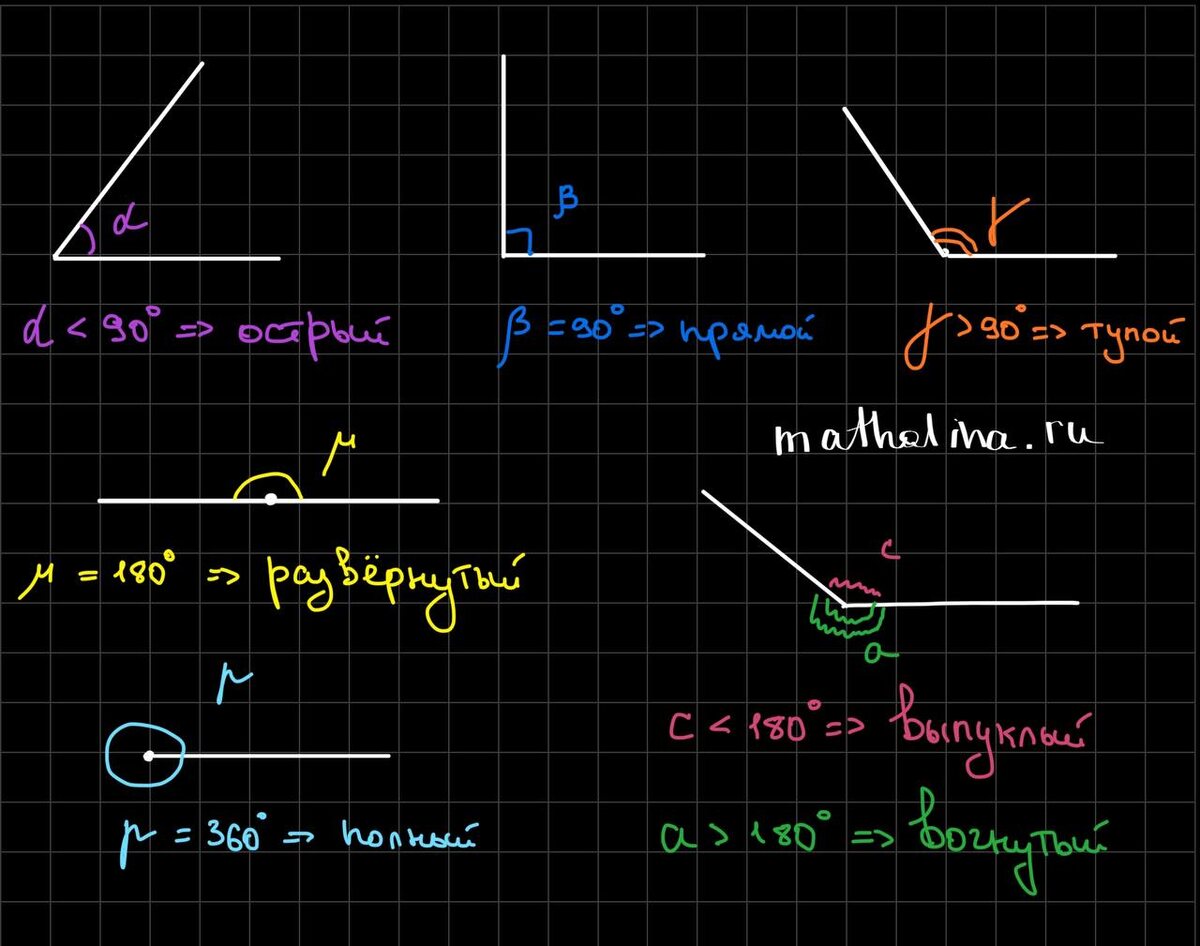 α
β
γ
α < 90° => острый
β = 90° => прямой
γ > 90° => тупой
matholina.ru
μ
μ = 180° => развёрнутый
c
a
μ
c < 180° => выпуклый
μ = 360° => полный
a > 180° => вогнутый